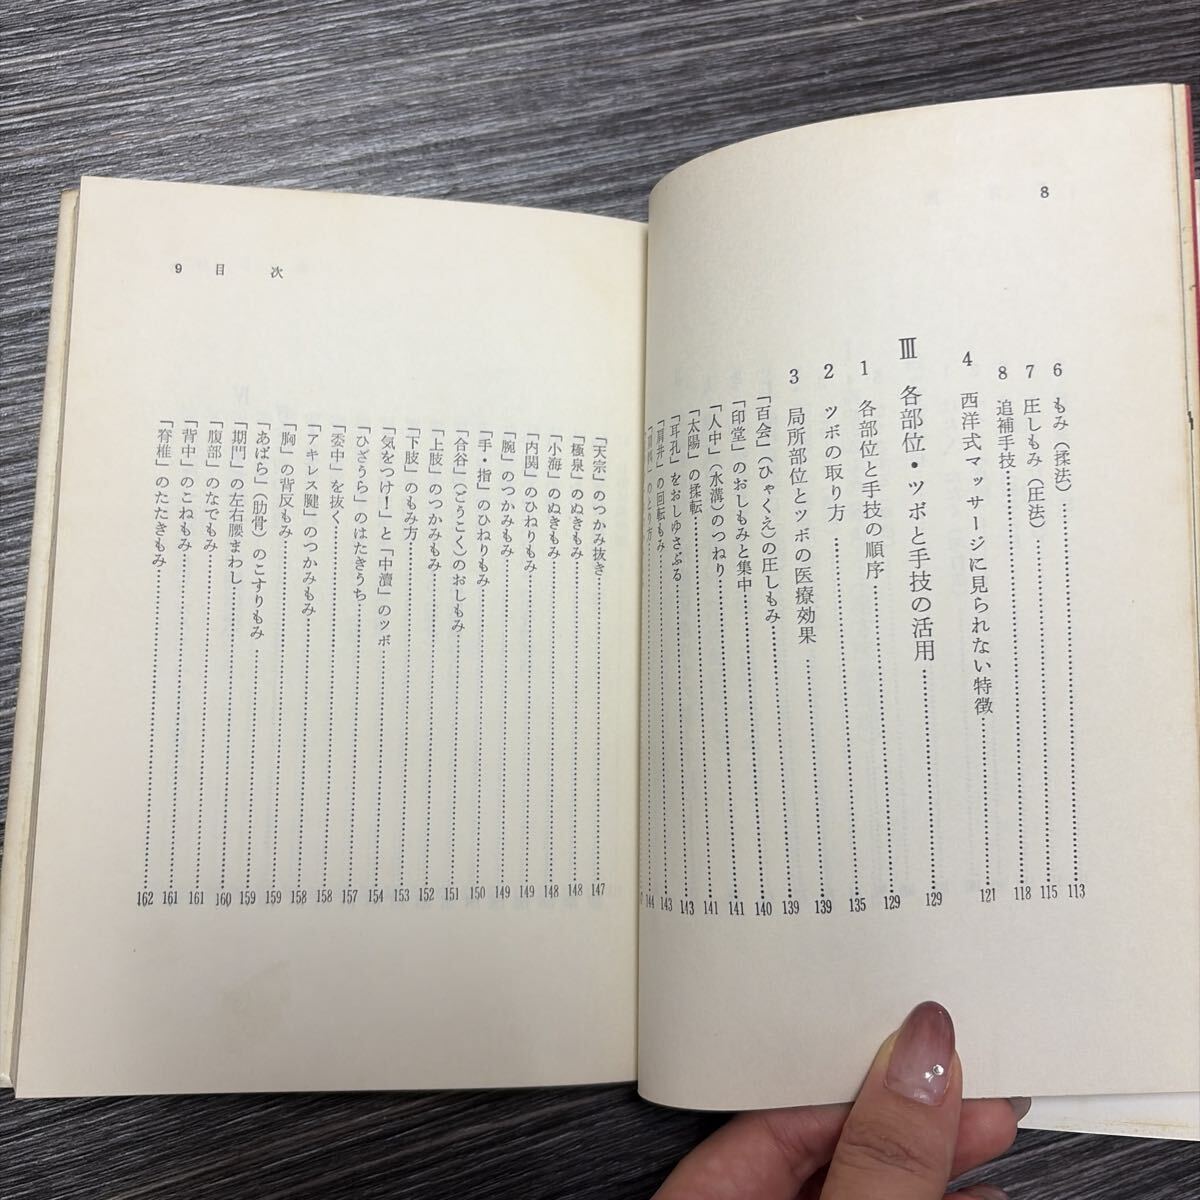 8
6 もみ（揉法）……113
7 圧しもみ（圧法）……115
8 追補手技……118
4 西洋式マッサージに見られない特徴……121
Ⅲ 各部位・ツボと手技の活用……129
1 各部位と手技の順序……129
2 ツボの取り方……135
3 局所部位とツボの医療効果……139
139
「百会」（ひゃくえ）の圧しもみ……140
「印堂」のおしもみと集中……141
「人中」（水溝）のつねり……141
「太陽」の揉転……143
「耳孔」をおしゆさぶる……143
「肩井」の回転もみ……144
のとり方
9 目次
「天宗」のつかみ抜き……147
「極泉」のぬきもみ……148
「小海」のぬきもみ……148
「内関」のひねりもみ……149
「腕」のつかみもみ……149
「手・指」のひねりもみ……150
「合谷」（ごうこく）のおしもみ……151
「上肢」のつかみもみ……152
「下肢」のもみ方……153
「気をつけ！」と「中瀆」のツボ……154
「ひざうら」のはたきうち……157
「委中」を抜く……158
「アキレス腱」のつかみもみ……158
「胸」の背反もみ……159
「あばら」（肋骨）のこすりもみ……159
「期門」の左右腰まわし……160
「腹部」のなでもみ……161
「背中」のこねもみ……161
「脊椎」のたたきもみ……162